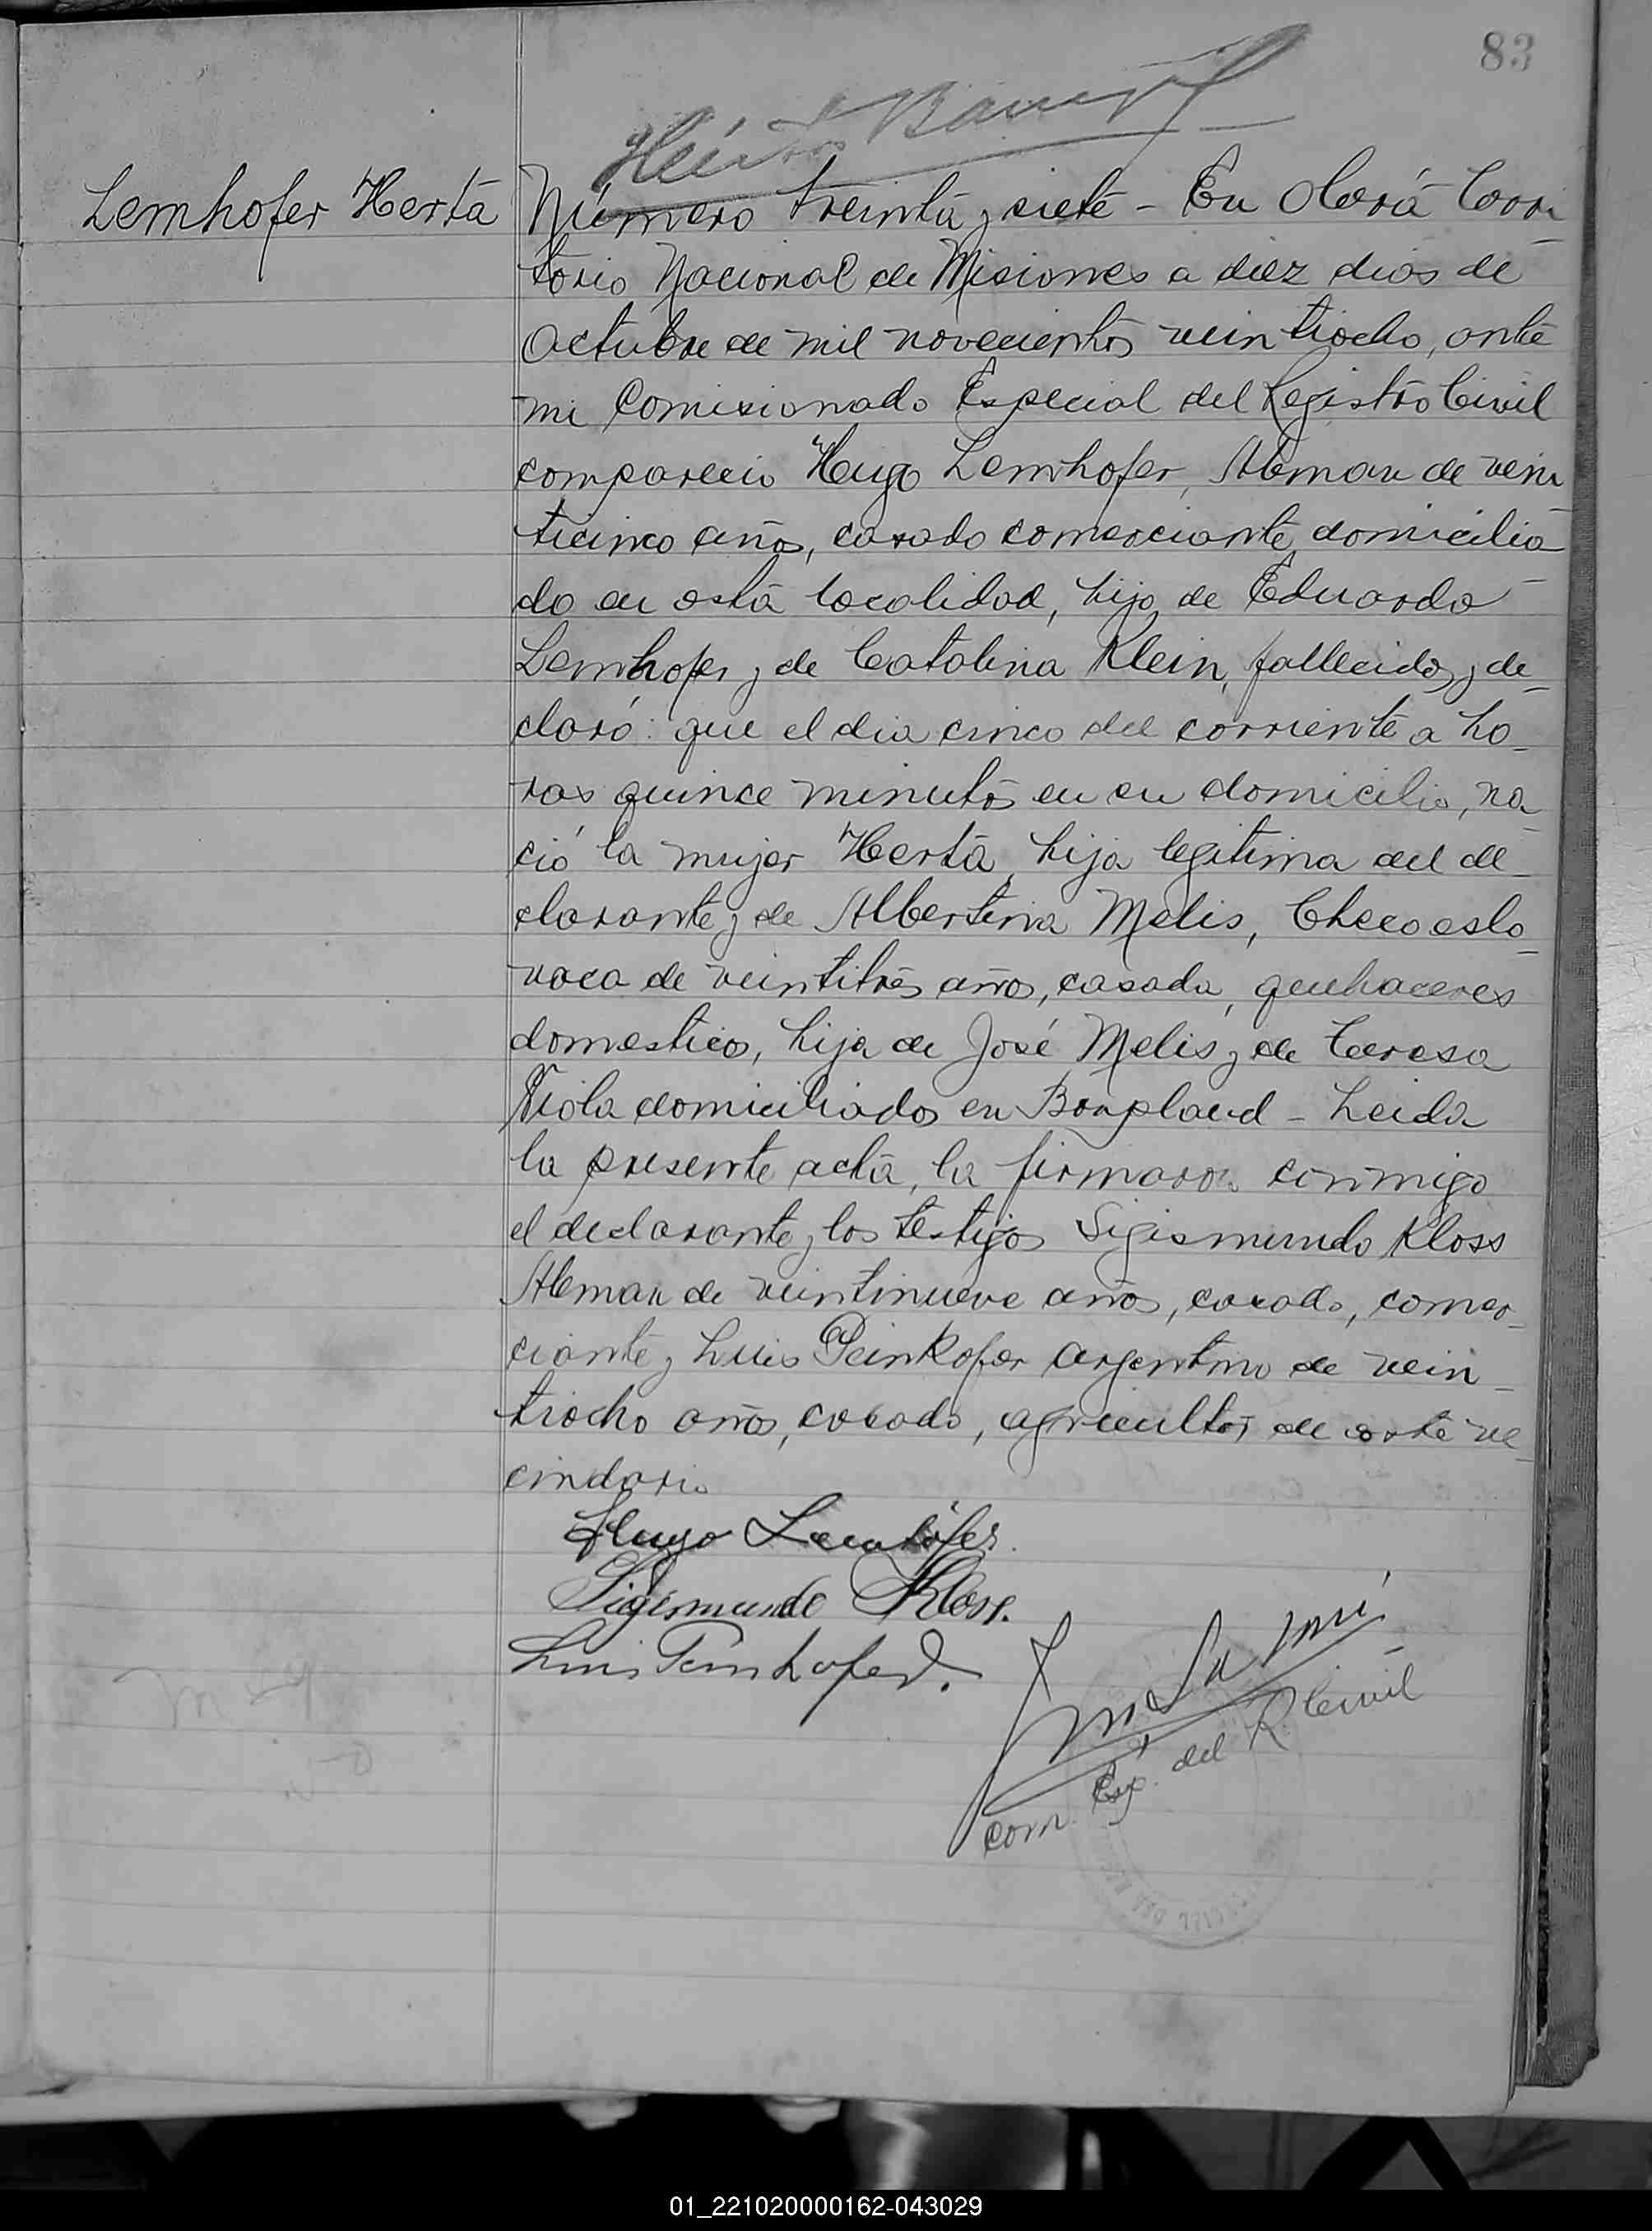 83
Lemhofer Herta
Número treinta y siete - En Oberá Terri
torio Nacional de Misiones a diez dias de
Octubre de mil novecientos veintiocho, ante
mi Comisionado Especial del Registro Civil
compareció Hugo Lemhofer, Aleman de vein
ticinco años, casado comerciante domicilia
do en esta localidad, hijo de Eduardo
Lemhofer y de Catalina Klein, fallecidos, y de-
claró: que el dia cinco del corriente a ho-
ras quince minutos en su domicilio, na-
ció la mujer Herta, hija legitima del de-
clarante y de Albertina Melis, Checoeslo-
vaca de veintitres años, casada, quehaceres
domesticos, hija de José Melis y de Teresa
Viola domiciliados en Bonpland - Leida
la presente acta, la firmaron conmigo
el declarante y los testigos Sigismundo Kloss
Aleman de veintinueve años, casado, comer-
ciante y Luis Peinkofer argentino de vein-
tiocho años, casado, agricultor de este ve-
cindario
Hugo Lemhofer.
Sigismundo Kloss.
Luis Peinkofer.
Com. Esp. del R. Civil
01_221020000162-043029